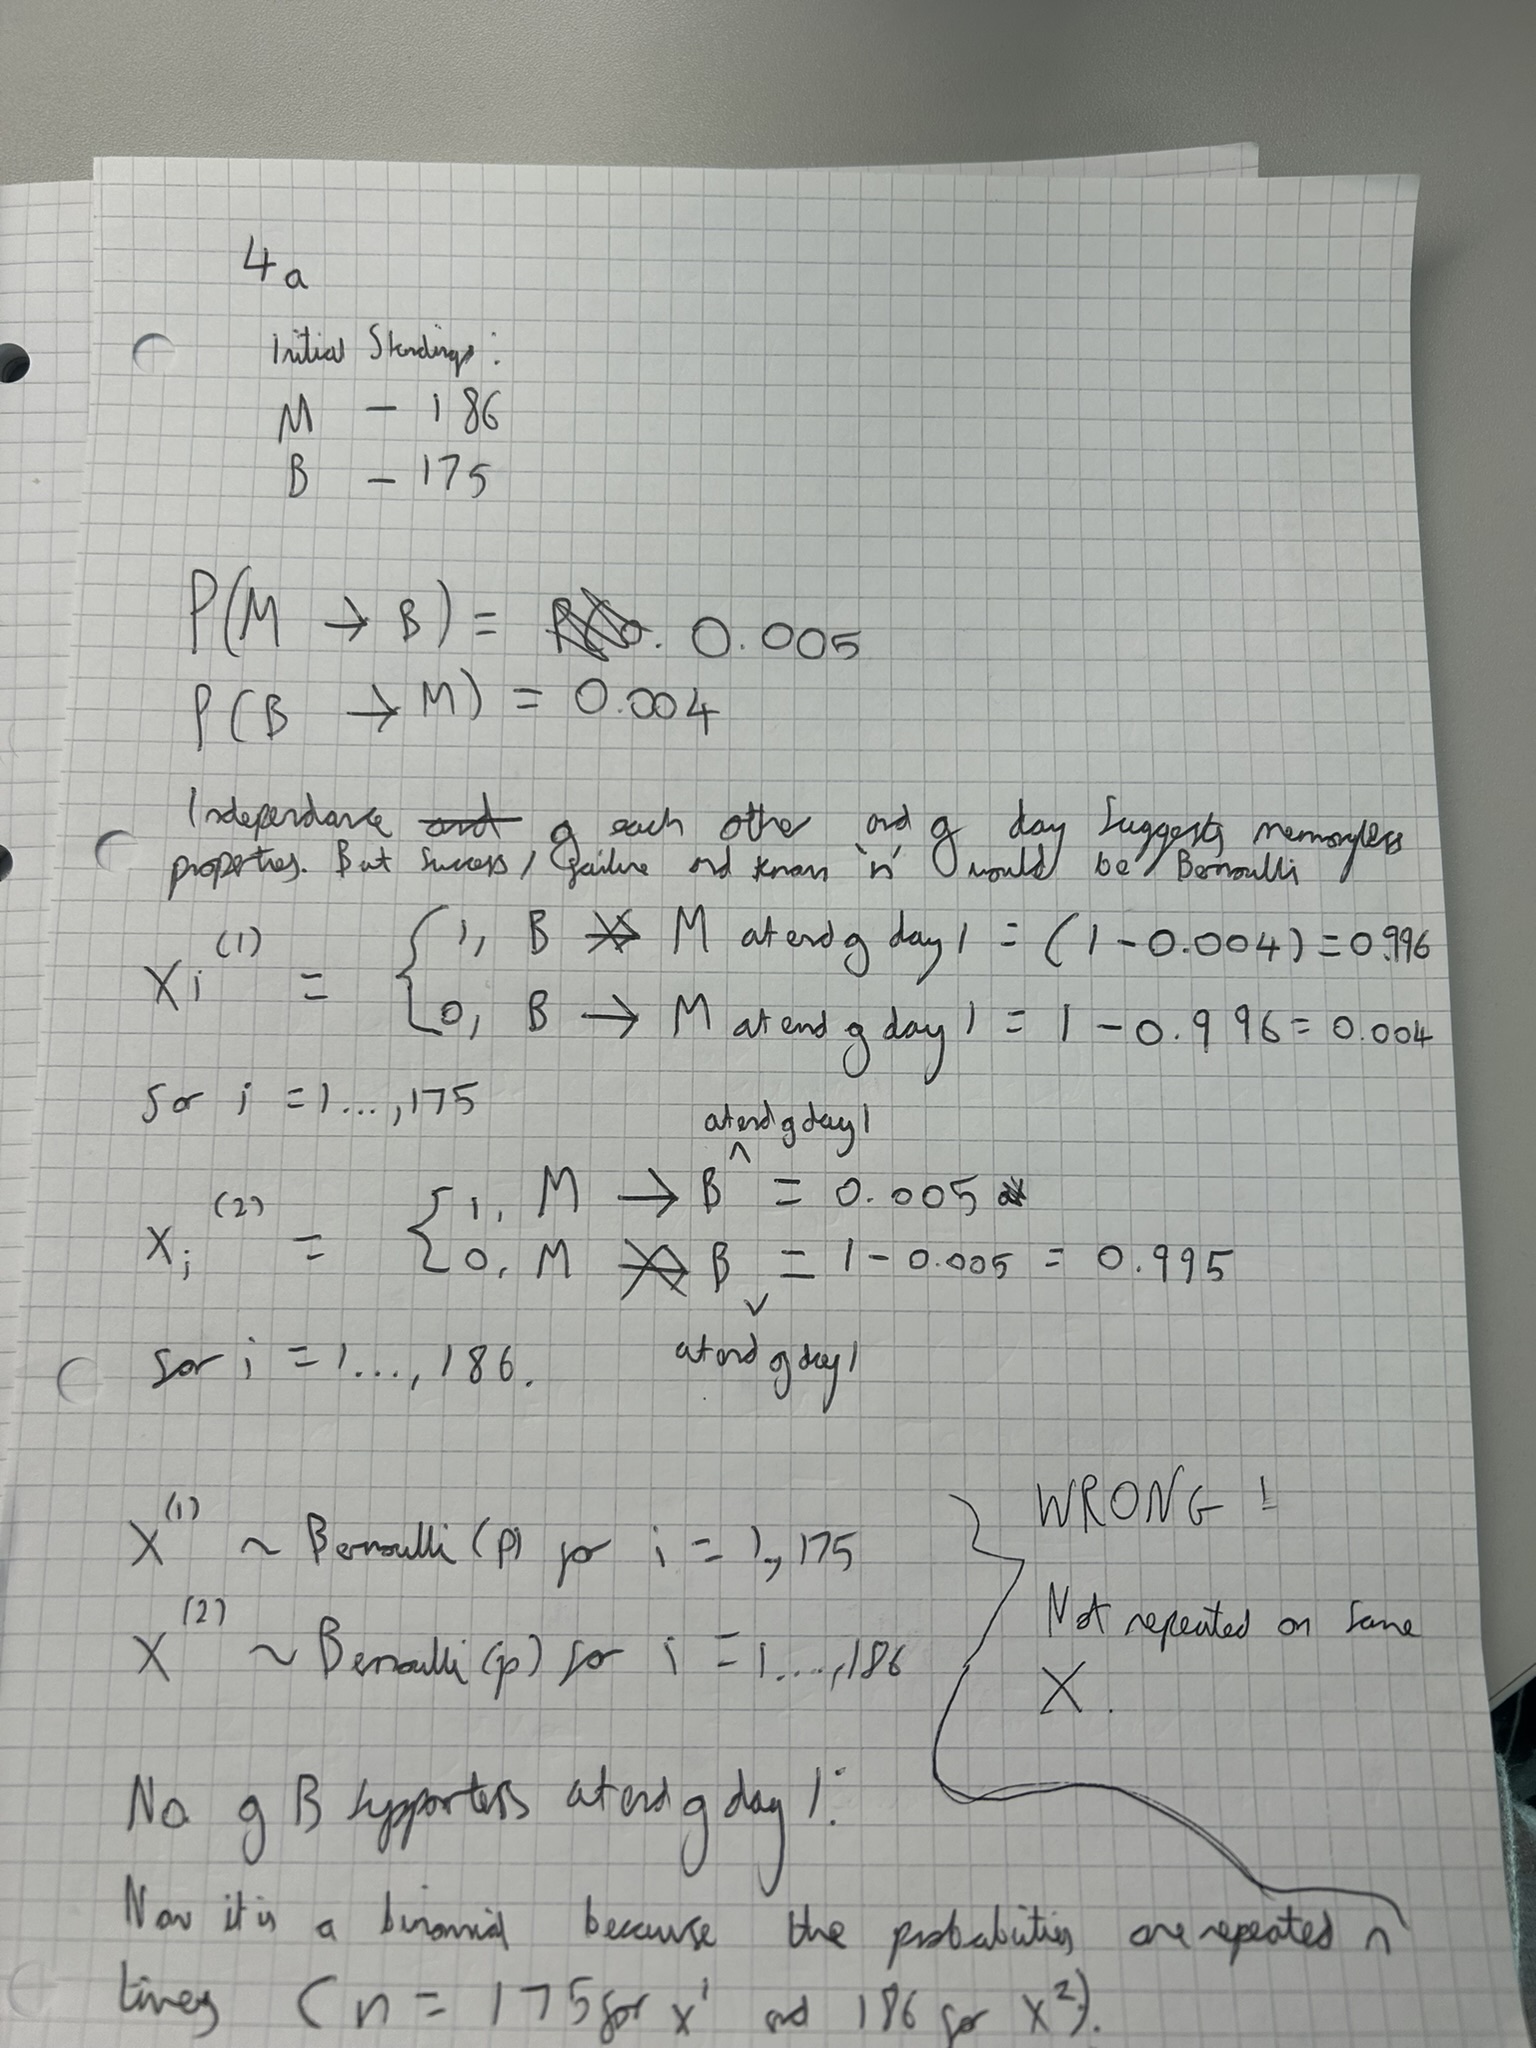 4a
Initial Standings:
M - 186
B - 175
P(M → B) = 0.005
P(B → M) = 0.004
Independance and of each other and of day suggests memoryless
properties. But success/failure and known 'n' would be Bernoulli
Xi⁽¹⁾ = { 1, B ↛ M at end of day 1 = (1 - 0.004) = 0.996
0, B → M at end of day 1 = 1 - 0.996 = 0.004
for i = 1...,175
at end of day 1
Xi⁽²⁾ = { 1, M → B = 0.005
0, M ↛ B = 1 - 0.005 = 0.995
for i = 1..., 186.
at end of day 1
X⁽¹⁾ ~ Bernoulli (p) for i = 1,..,175
X⁽²⁾ ~ Bernoulli (p) for i = 1....,186
WRONG!
Not repeated on same
X.
No of B supporters at end of day 1:
Now it is a binomial because the probabilities are repeated n
times (n = 175 for x¹ and 186 for x²).